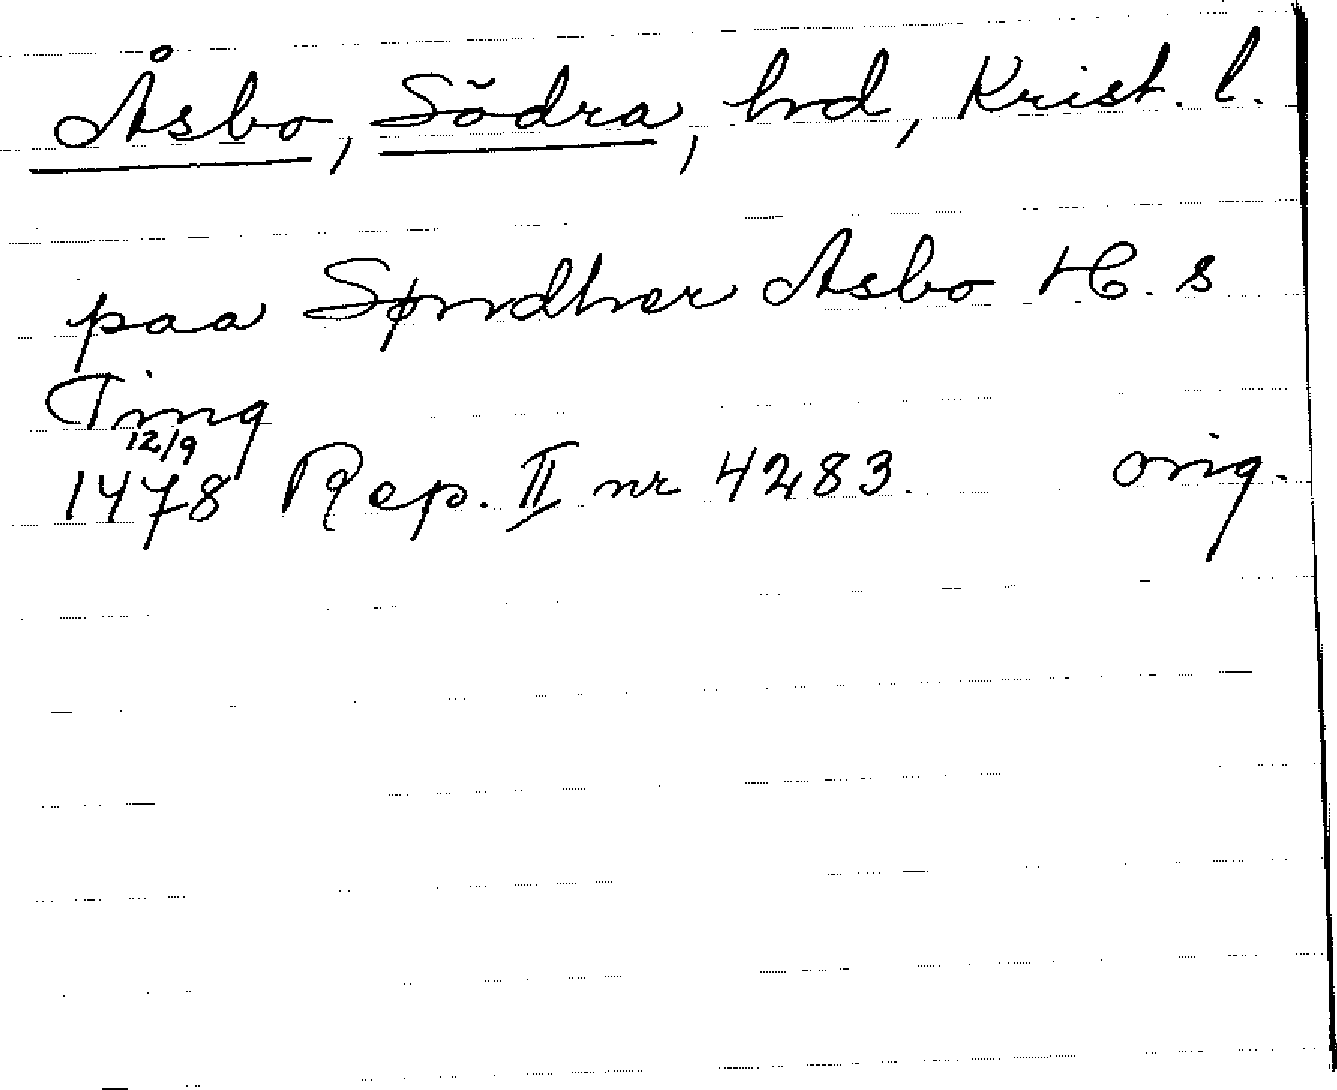 Åsbo, Södra, hd, Krist. l.
paa Søndher Asbo H. s
Ting
12/9
1478 Rep. II nr 4283. orig.